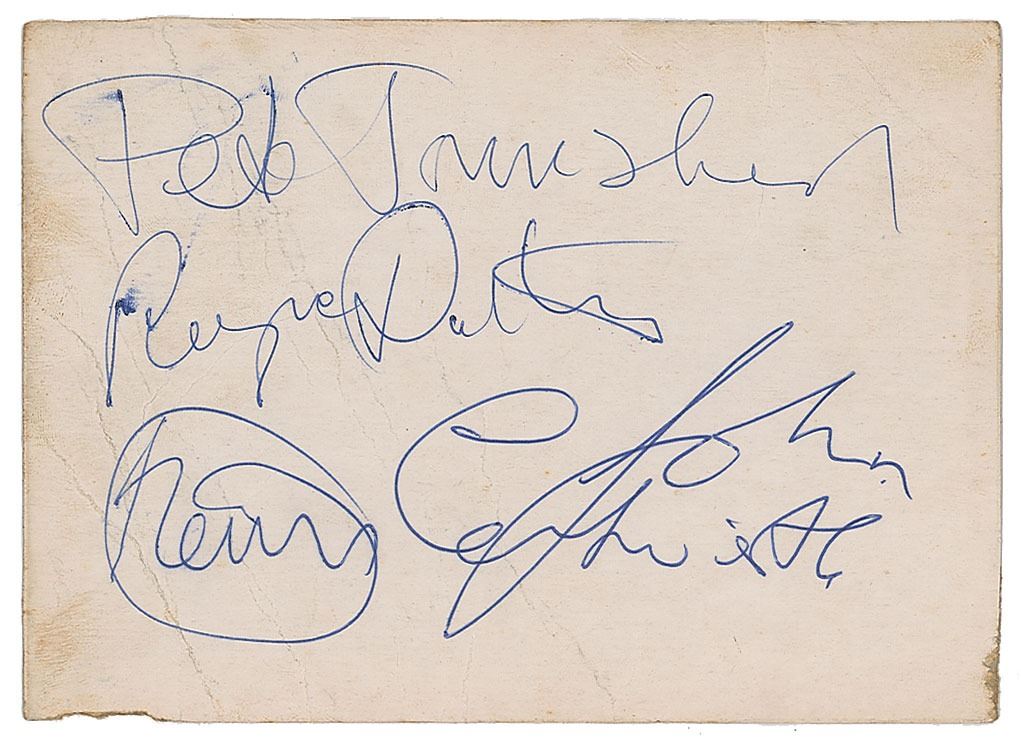 Pete Townshend
Roger Daltrey
John
Entwistle